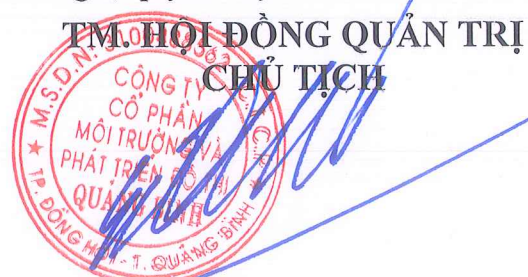 TM. HỘI ĐỒNG QUẢN TRỊ
CHỦ TỊCH
M.S.D.N:
C.T.C.P
CÔNG TY
CỔ PHẦN
MÔI TRƯỜNG VÀ
PHÁT TRIỂN ĐÔ THỊ
QUẢNG BÌNH
TP. ĐỒNG HỚI - T. QUẢNG BÌNH